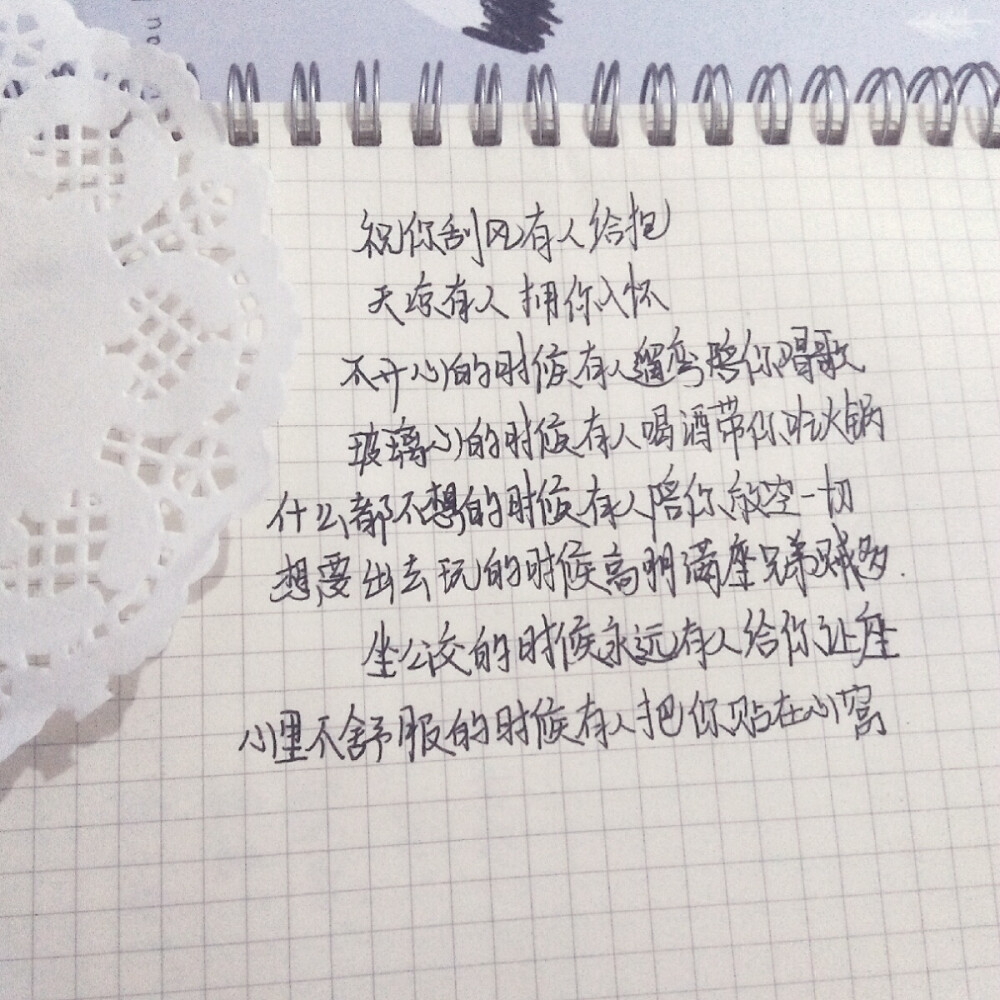 祝你刮风有人给抱
天凉有人拥你入怀
不开心的时候有人遛弯陪你唱歌
玻璃心的时候有人喝酒带你吃火锅
什么都不想的时候有人陪你放空一切
想要出去玩的时候高朋满座兄弟贼多.
坐公交的时候永远有人给你让座
心里不舒服的时候有人把你贴在心窝